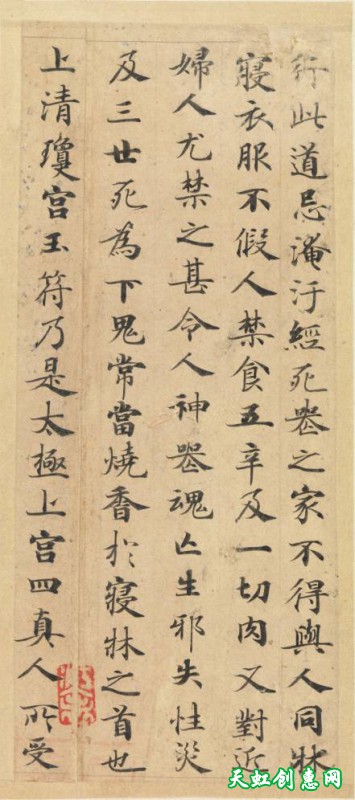 行此道忌淹汙經死喪之家不得與人同牀
寢衣服不假人禁食五辛及一切肉又對近
婦人尤禁之甚令人神喪魂亡生邪失性災
及三世死為下鬼常當燒香於寢牀之首也
上清瓊宮玉符乃是太極上宮四真人所受
天虹创惠网